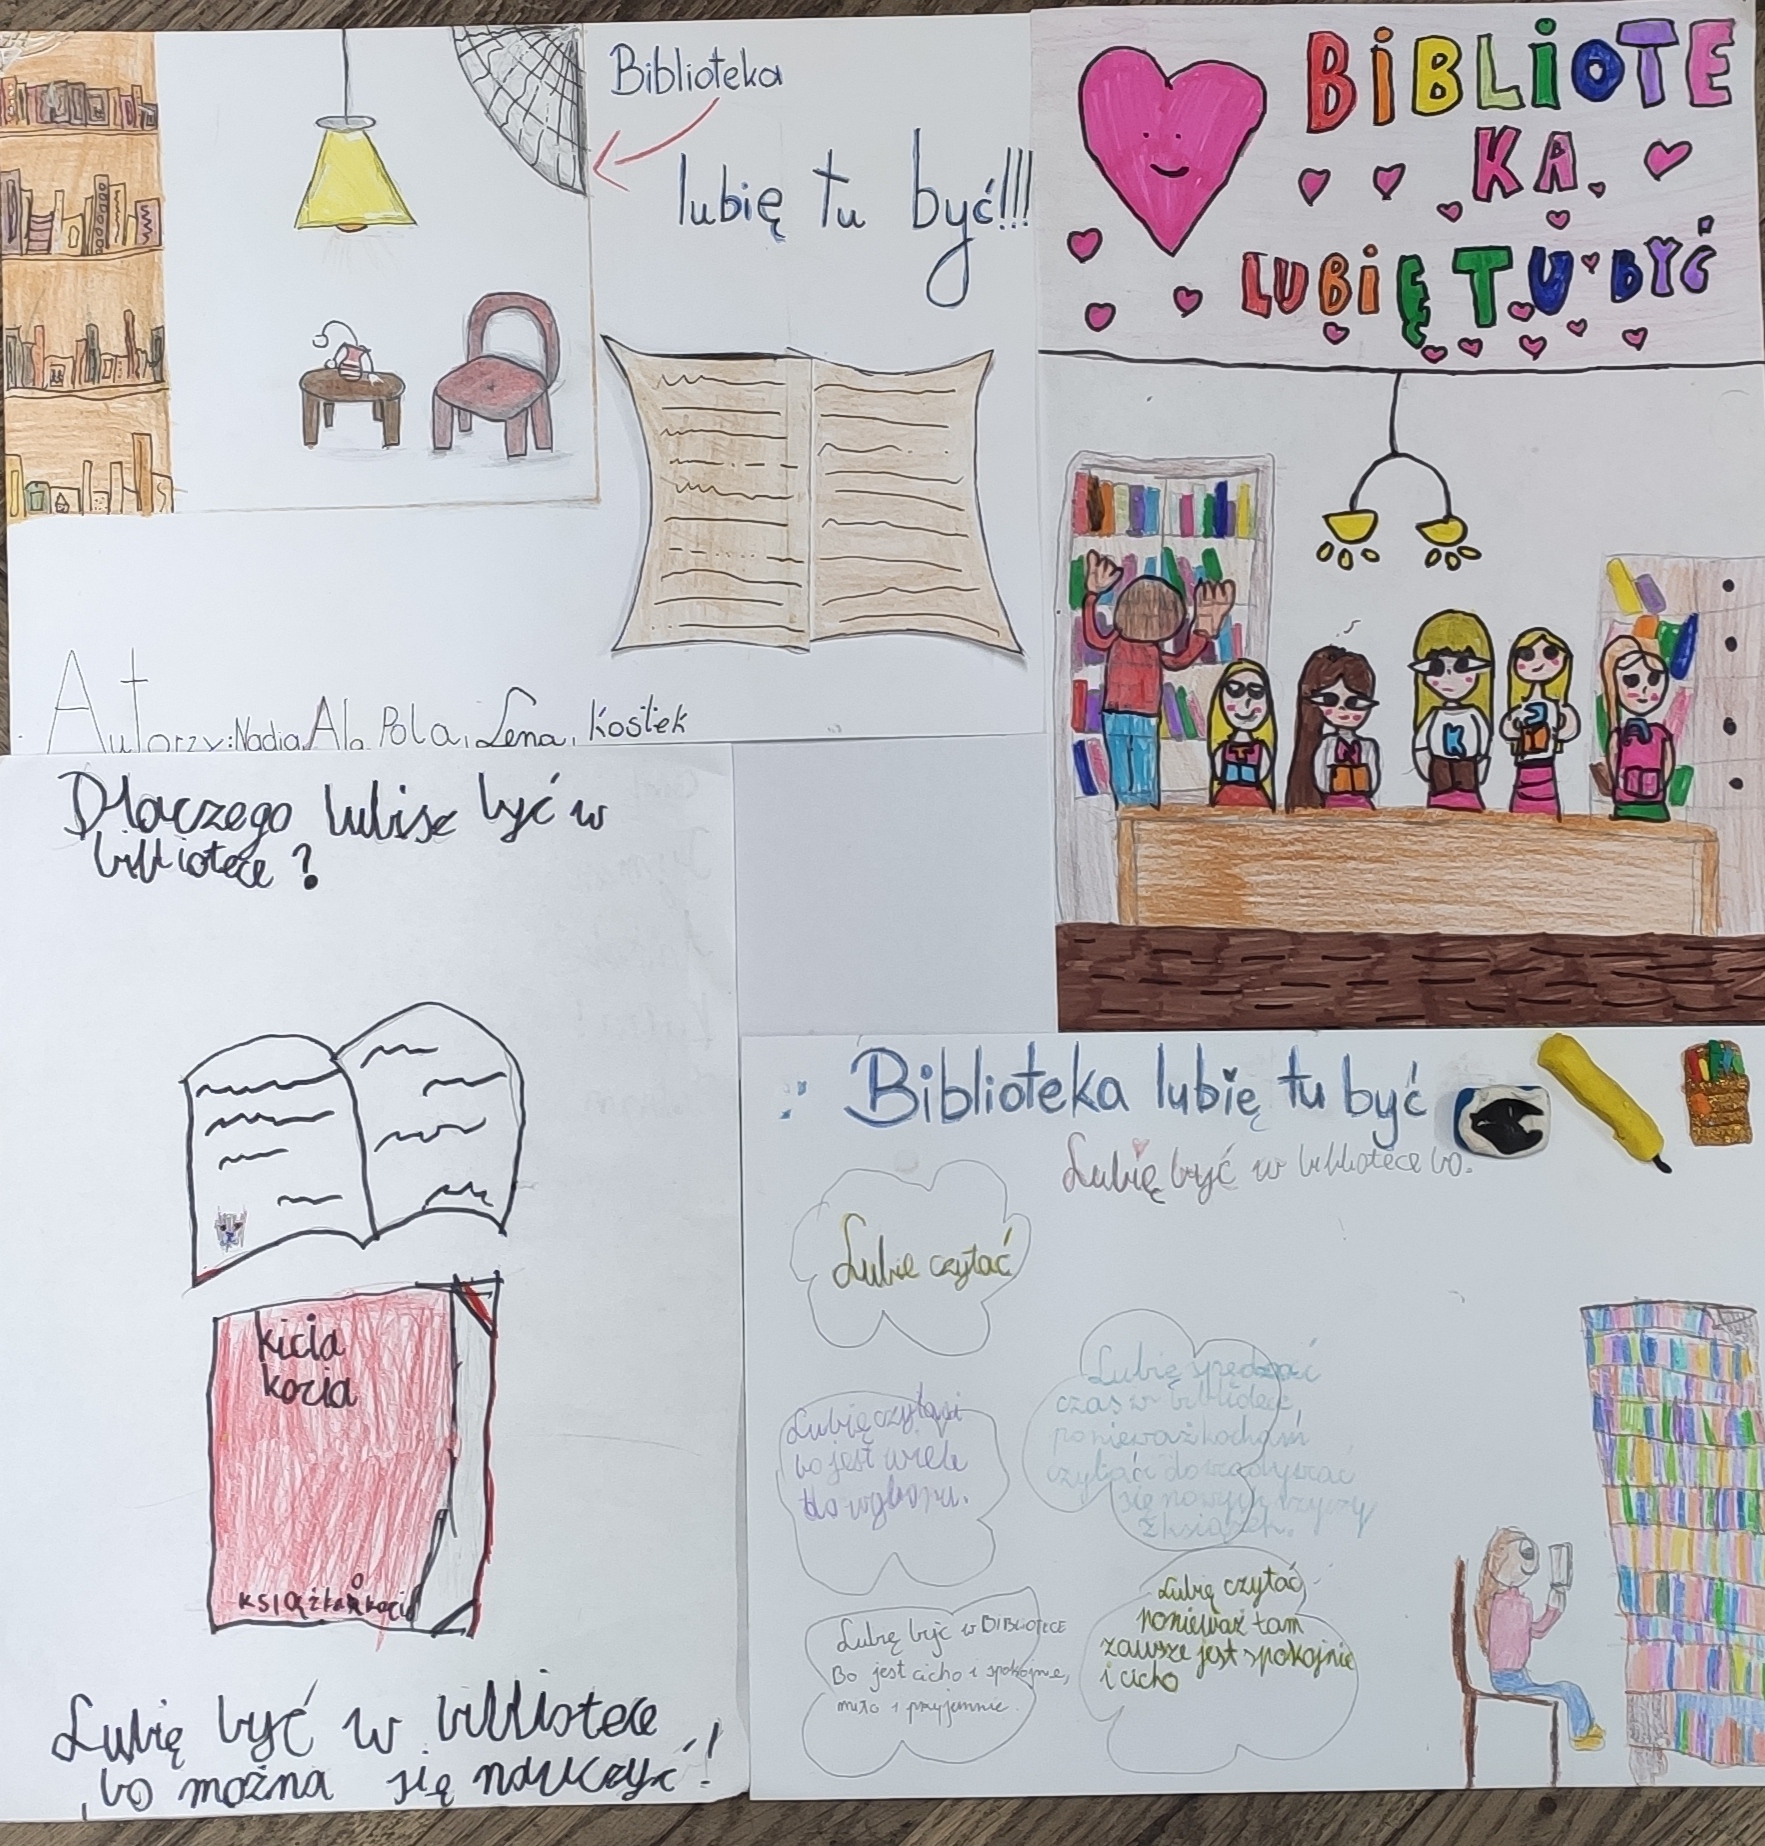 Biblioteka
lubię tu być!!!
Autorzy: Nadia, Ala, Pola, Lena, Kostek
BiBLiOTE
KA
LUBIĘ TU BYĆ
T
K
Dlaczego lubisz być w
bibliotece?
kicia
kocia
książka
Lubię być w bibliotece
bo można się nauczyć!
Biblioteka lubię tu być
Lubię być w bibliotece bo.
Lubie czytać
Lubię czytać
bo jest wiele
do wyboru.
Lubię spędzać
czas w bibliotece,
ponieważ kocham
czytać i
się nowych rzeczy
z książek.
Lubię być w BIBLIOTECE
Bo jest cicho i spokojnie,
miło i przyjemnie.
Lubię czytać
ponieważ tam
zawsze jest spokojnie
i cicho